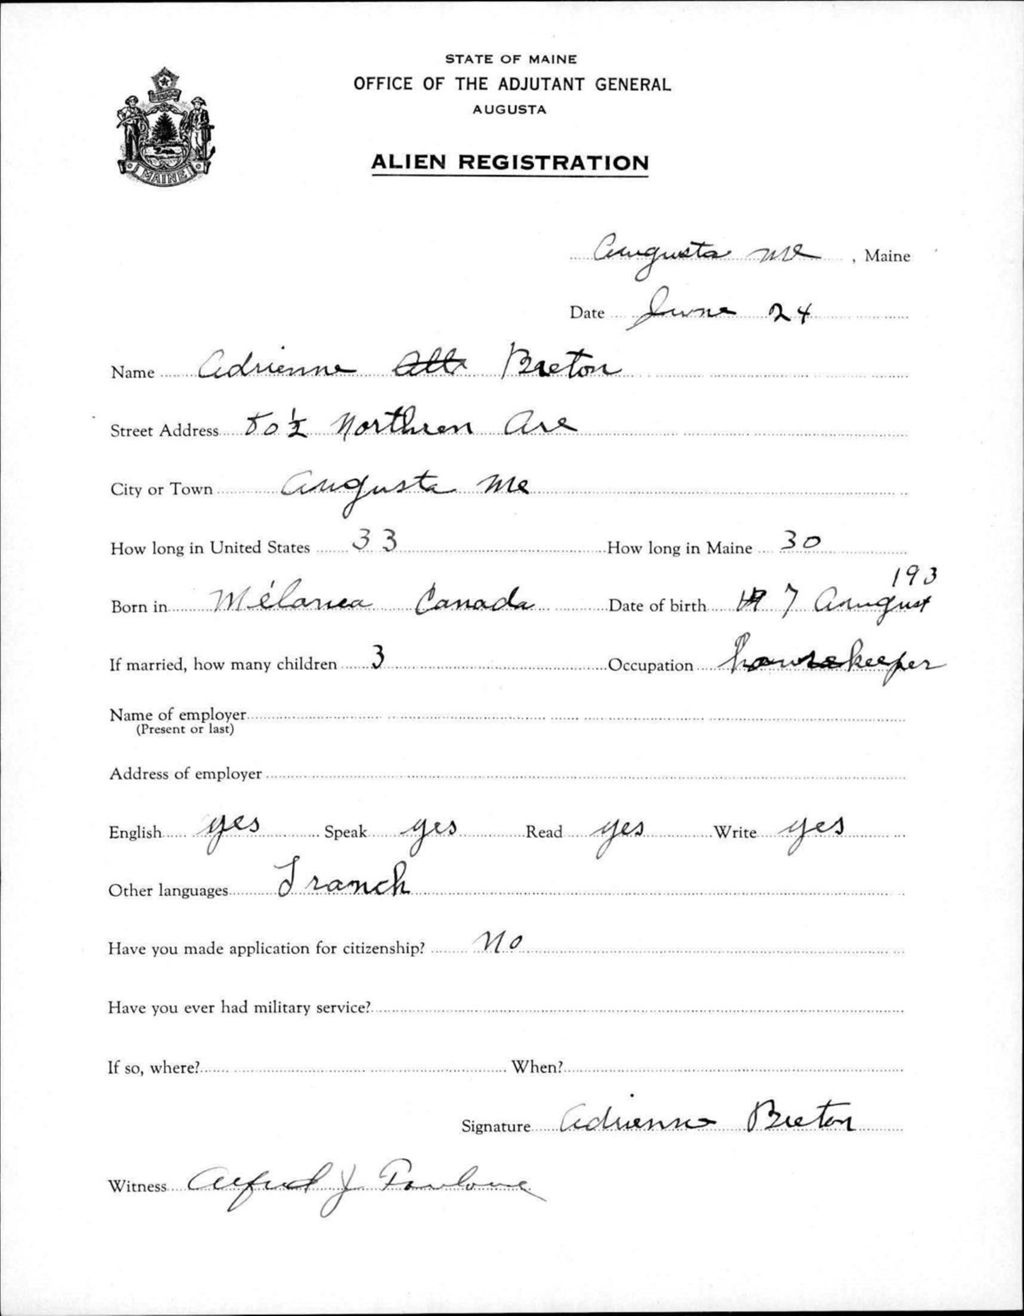 STATE OF MAINE
OFFICE OF THE ADJUTANT GENERAL
AUGUSTA
MAINE
ALIEN REGISTRATION
Augusta Me , Maine
Date June 24
Name Adrienne Breton
Street Address 80 ½ Northren Ave
City or Town Augusta Me
How long in United States 33 How long in Maine 30
193
Born in Canada Date of birth 7 August
If married, how many children 3 Occupation housekeeper
Name of employer
(Present or last)
Address of employer
English yes Speak yes Read yes Write yes
Other languages Franch
Have you made application for citizenship? No
Have you ever had military service?
If so, where? When?
Signature Adrienne Breton
Witness Alfred J